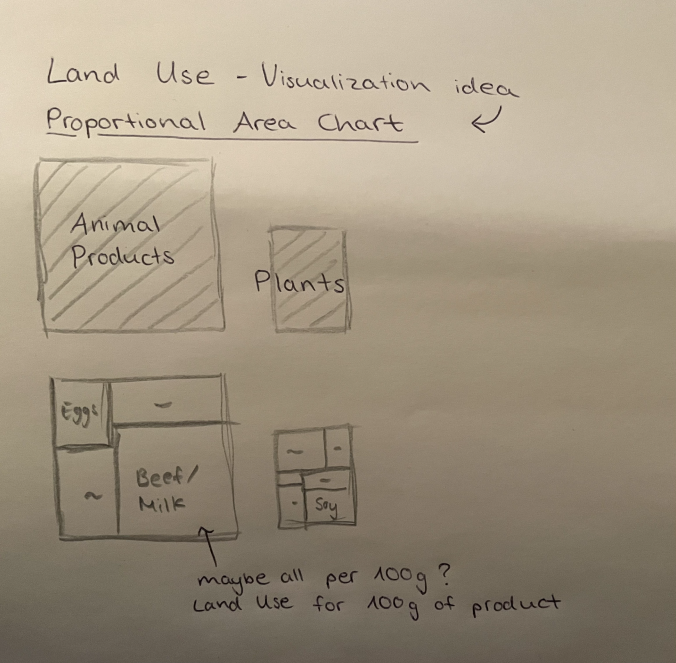 Land Use - Visualization idea
Proportional Area Chart
Animal
Products
Plants
Eggs
~
~
Beef/
Milk
~
-
-
-
Soy
maybe all per 100g?
Land Use for 100g of product